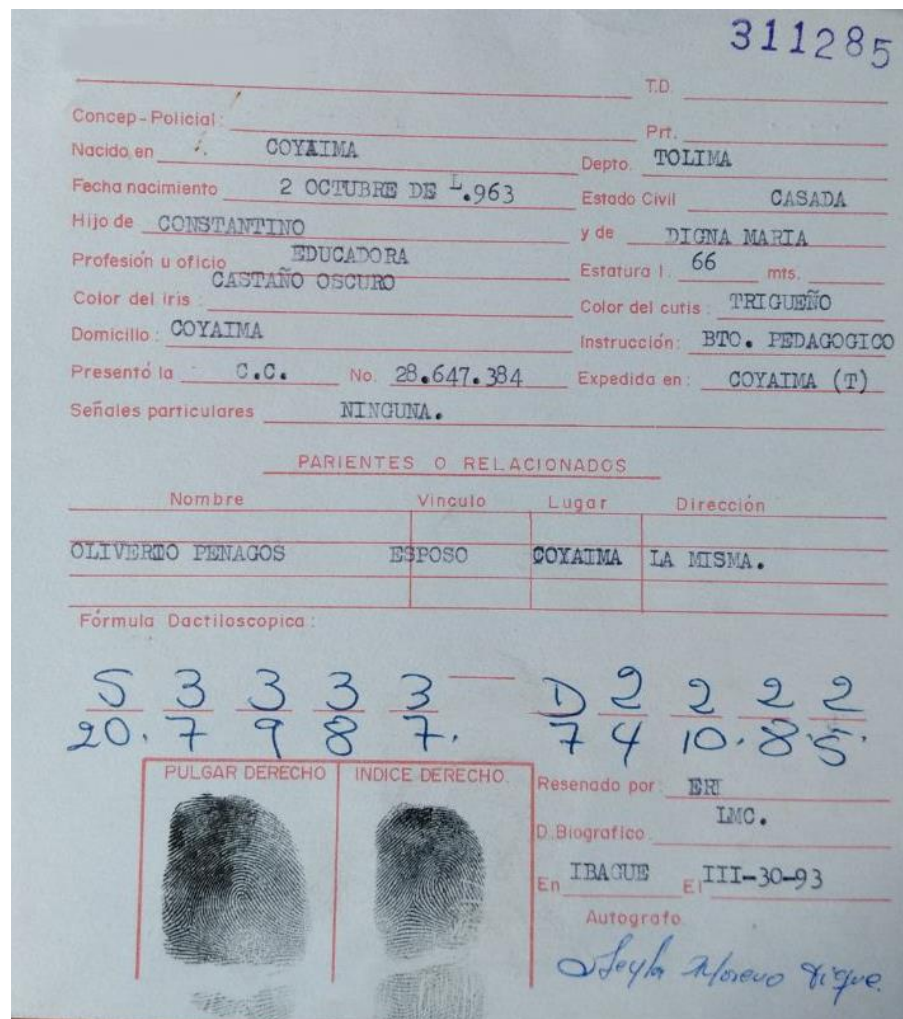 311285
T.D.
Concep-Policial: Prt.
Nacido en COYAIMA Depto. TOLIMA
Fecha nacimiento 2 OCTUBRE DE L.963 Estado Civil CASADA
Hijo de CONSTANTINO y de DIGNA MARIA
Profesión u oficio EDUCADORA Estatura 1. 66 mts.
Color del iris: CASTAÑO OSCURO Color del cutis: TRIGUEÑO
Domicilio: COYAIMA Instrucción: BTO. PEDAGOGICO
Presentó la C.C. No. 28.647.384 Expedida en: COYAIMA (T)
Señales particulares NINGUNA.
PARIENTES O RELACIONADOS
Nombre Vinculo Lugar Dirección
OLIVERTO PENAGOS ESPOSO COYAIMA LA MISMA.
Fórmula Dactiloscopica:
S 3 3 3 3 — D 2 2 2 2
20. 7 9 8 7. 7 4 10. 8. 5.
PULGAR DERECHO INDICE DERECHO.
Resenado por: ERI
D. Biografico LMC.
En IBAGUE El III-30-93
Autografo
Leyla Moreno Tique.